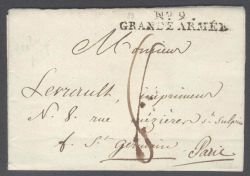 No. 9.
GRANDE ARMÉE
Monsieur
Levrault, imprimeur
N. 8 rue mézières St. Sulpice
f. St. Germain
Paris